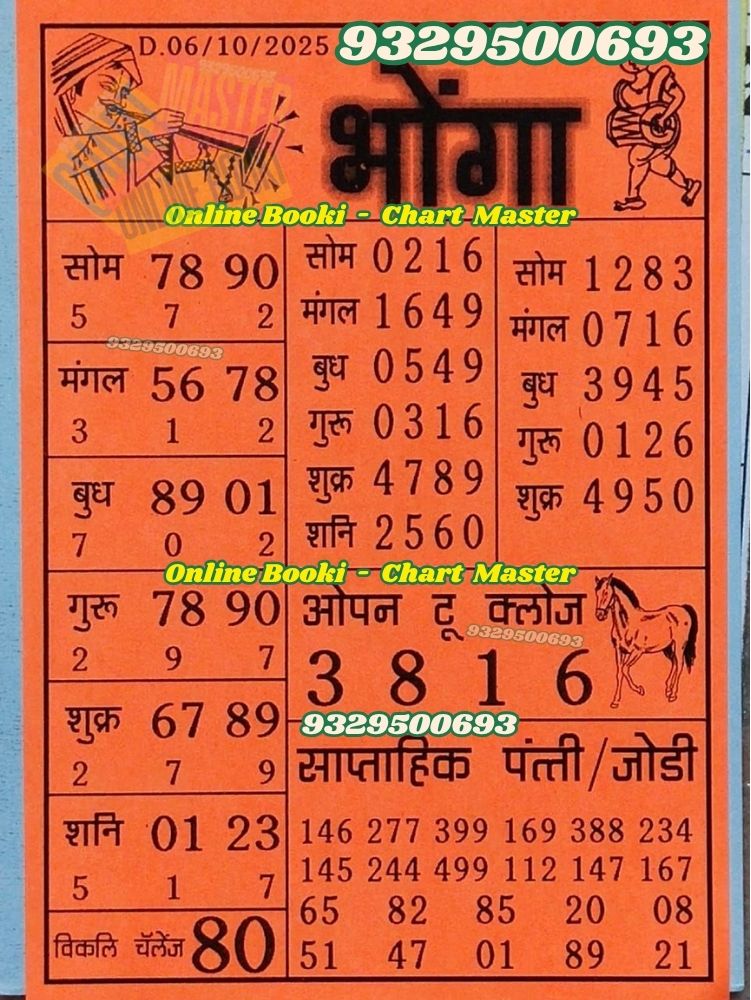 D.06/10/2025 9329500693
भोंगा
Online Booki - Chart Master
सोम 78 90
5 7 2
9329500693
मंगल 56 78
3 1 2
बुध 89 01
7 0 2
गुरू 78 90
2 9 7
शुक्र 67 89
2 7 9
शनि 01 23
5 1 7
विकलि चॅलेंज 80
सोम 0216
मंगल 1649
बुध 0549
गुरू 0316
शुक्र 4789
शनि 2560
सोम 1283
मंगल 0716
बुध 3945
गुरू 0126
शुक्र 4950
Online Booki - Chart Master
ओपन टू क्लोज
9329500693
3 8 1 6
9329500693
साप्ताहिक पंत्ती/जोडी
146 277 399 169 388 234
145 244 499 112 147 167
65 82 85 20 08
51 47 01 89 21